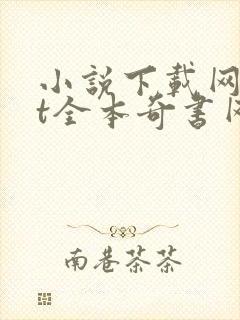 小說下載网
t全本奇書网
南巷茶茶